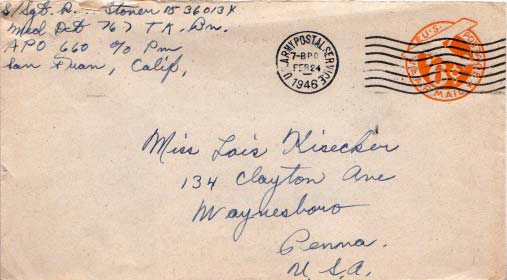 S/Sgt. R. Stoner 1536013X
Med Det 767 TK. Bn.
APO 660 % Pm
San Fran, Calif,
U.S. ARMY POSTAL SERVICE
7-BPO
FEB 24
1946
U.S. POSTAGE
VIA AIR MAIL
Miss Lois Kisecker
134 Clayton Ave
Waynesboro
Penna.
U.S.A.